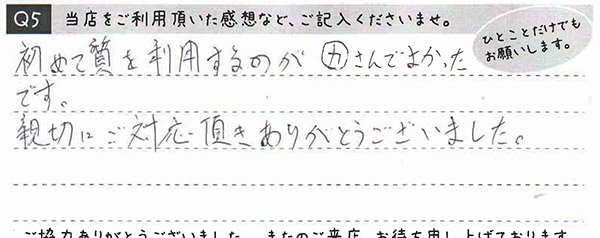 Q5 当店をご利用頂いた感想など、ご記入くださいませ。
ひとことだけでも
お願いします。
初めて質を利用するのが㋕さんでよかった
です。
親切にご対応頂きありがとうございました。
ご協力ありがとうございました。またのご来店、お待ち申し上げております